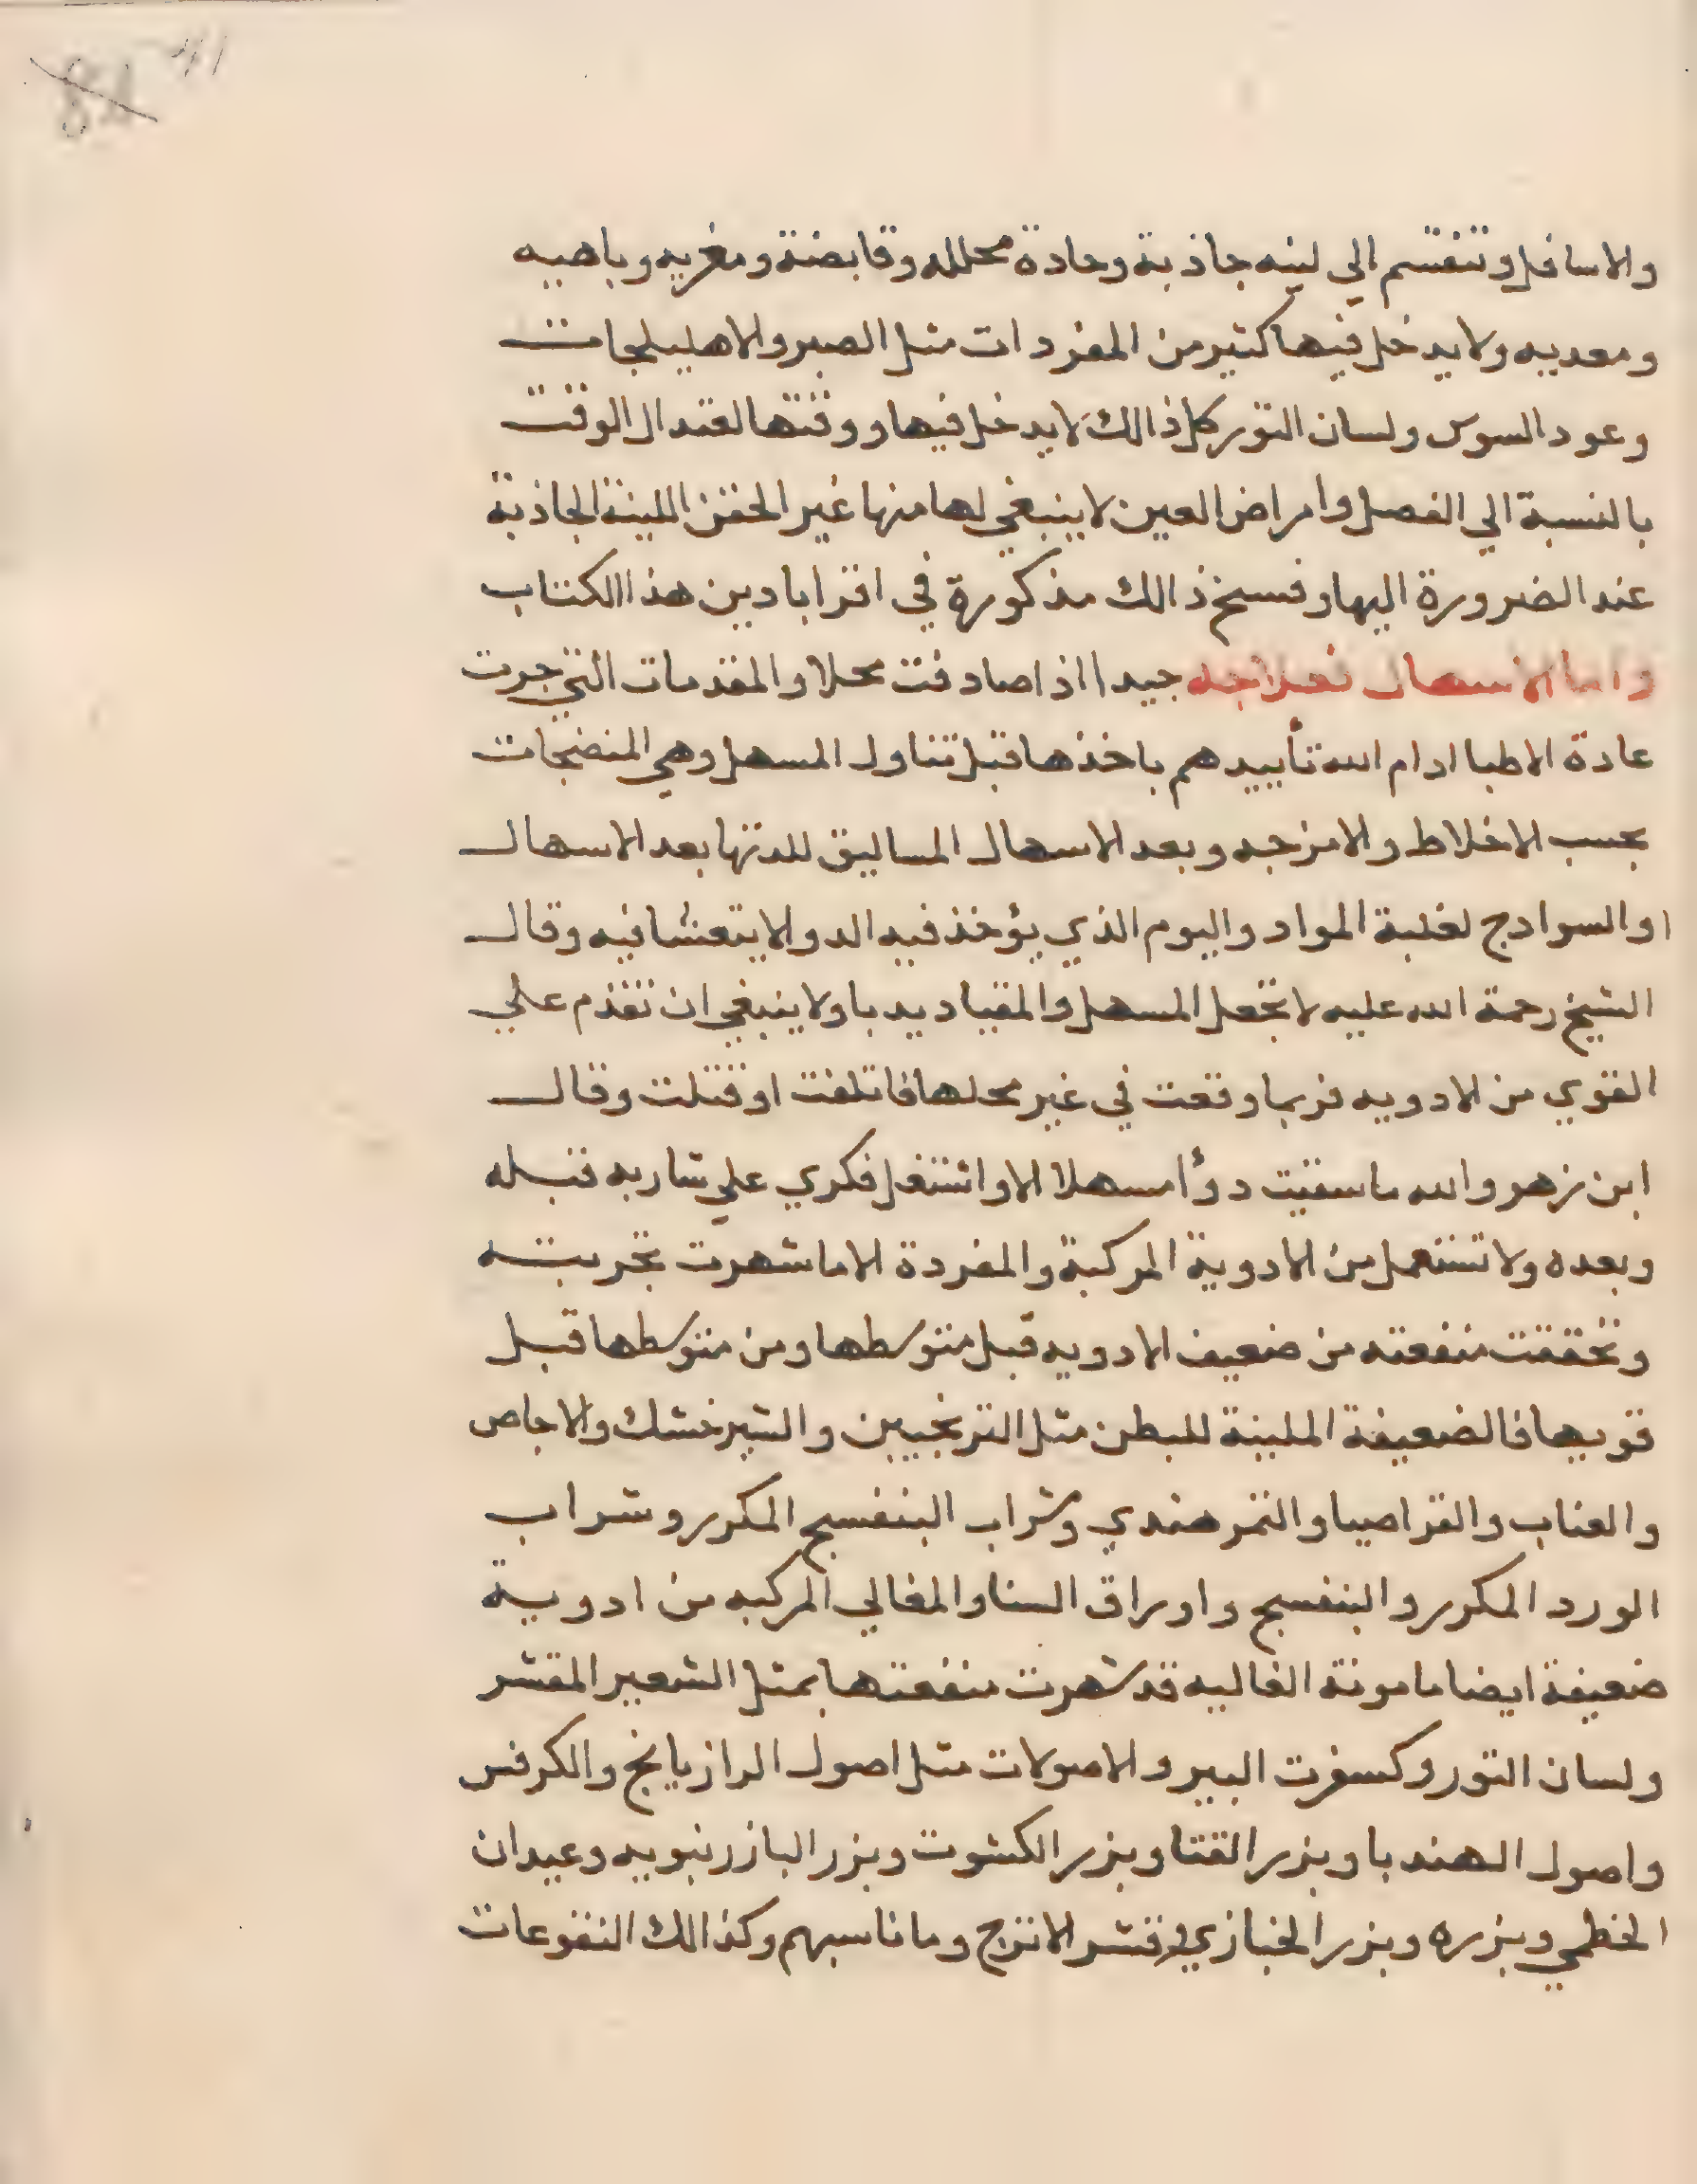 والاسافل وتنقسم الي لينه جاذبة وحادة محلله وقابضة ومغريه وباهييه
ومعدييه ولا يدخل فيها كثير من المفردات مثل الصبر والاهليلجات
وعود السوس ولسان التور كل ذالك لا يدخل فيها ووقتها لعتدال الوقت
بالنسبة الي الفصل وامراض العين لا ينبغي لها منها غير الحقن اللينة الجاذبة
عند الضرورة اليها وفسخ ذالك مذكورة في اقرابادين هذا الكتاب
واما الاسهال فعلاجه جيدا اذا صادفت محلا والمقدمات التي جرت
عادة الاطبا ادام الله تأييدهم باخذها قبل تناول المسهل وهي المنضجات
بحسب الاخلاط والامزجه وبعد الاسهال المساليق للدتها بعد الاسهال
او السوادج لغلبة المواد واليوم الذي يؤخذ فيه الدوا لا يتعشا فيه وقال
الشيخ رحمة الله عليه لا تجعل المسهل والمقيا ديدبا ولا ينبغي ان تقدم علي
القوي من الادويه فربما وقعت في غير محلها فاتلفت او قتلت وقال
ابن زهر والله ما سقيت دوأ مسهلا الا واشتغل فكري علي شاربه قبله
وبعده ولا تستعمل من الادوية المركبة والمفردة الا ما شهرت تجربته
وتحققت منفعته من ضعيف الادويه قبل متوسطها ومن متوسطها قبل
قويها فالضعيفة الملينة للبطن مثل الترنجبين والشيرخشك والاجاص
والعناب والقراصيا والتمر هندي وشراب البنفسج المكرر وشراب
الورد المكرر والبنفسج واوراق السنا والمغالي المركبه من ادوية
ضعيفة ايضا مامونة الغاليه قد شهرت منفعتها بمثل الشعير المقشر
ولسان التور وكسفرت البير والاصولات مثل اصول الرازيانج والكرفس
واصول الهندبا وبزر القتا وبزر الكشوت وبزر البازرنبويه وعيدان
الخطمي وبزره وبزر الخبازي وقشر الاترج وما ناسبهم وكذالك النقوعات